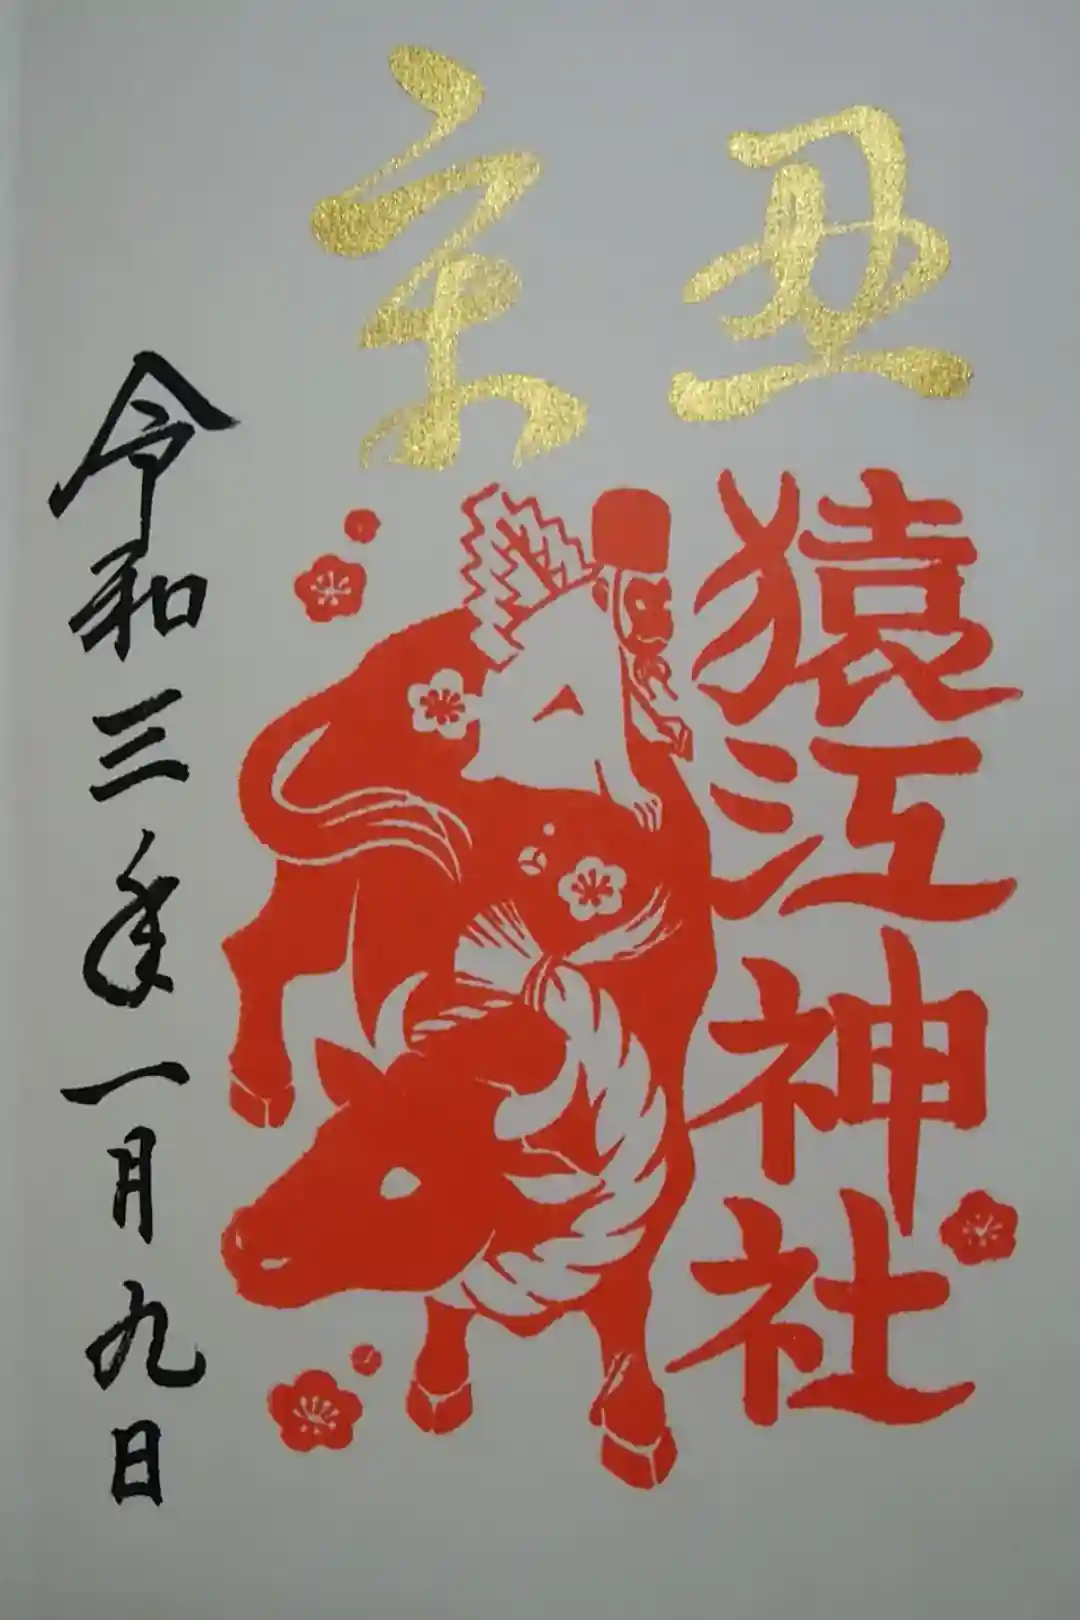 丑
猿江神社
令和三年一月九日